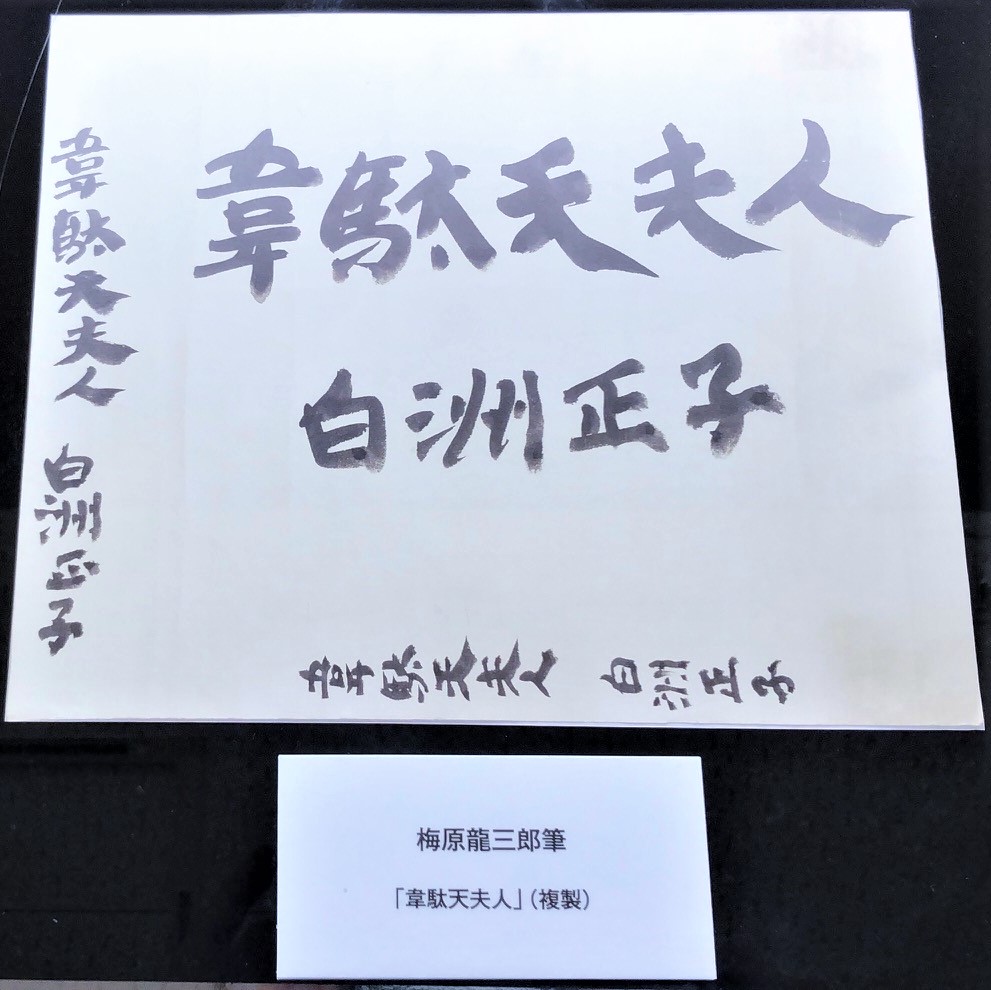 韋駄天夫人
白洲正子
韋駄天夫人 白洲正子
韋駄天夫人 白洲正子
梅原龍三郎筆
「韋駄天夫人」（複製）